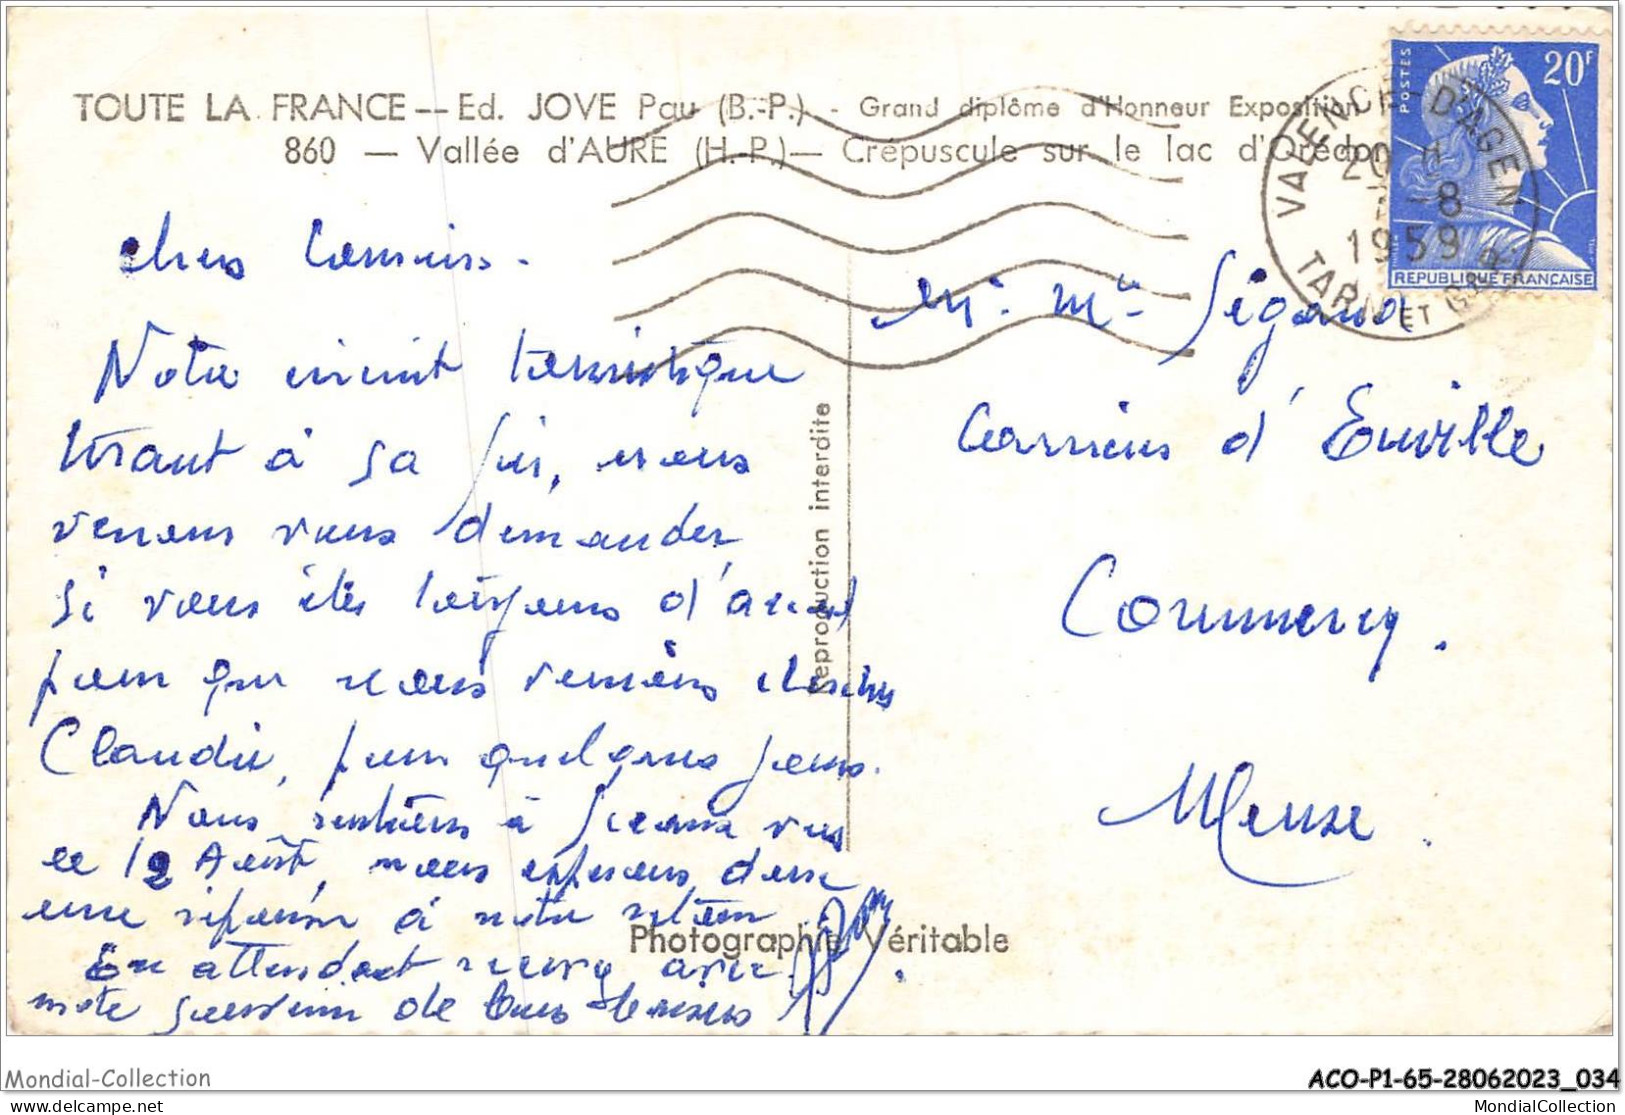 TOUTE LA FRANCE -- Ed. JOVE Pau (B.-P.) - Grand diplôme d'Honneur Exposition
860 — Vallée d'AURE (H.-P.) — Crépuscule sur le lac d'Orédon
POSTES 20F
REPUBLIQUE FRANÇAISE
VALENCE-D'AGEN
20 H
-8
1959
TARN ET GAR.
chers Cousins.
Notre circuit touristique
tirant à sa fin, nous
venons vous demander
si vous êtes toujours d'accord
pour que nous venions chercher
Claudie, pour quelques jours.
Nous rentrons à Sceaux
le 12 Août, nous espérons donc
une réponse à notre retour
En attendant recevez avec
notre souvenir de bons baisers
Reproduction interdite
Photographie Véritable
Mr. Mme Sigaud
Carrières d'Euville
Commercy.
Meuse.
Mondial-Collection
ACO-P1-65-28062023_034
delcampe.net
MondialCollection